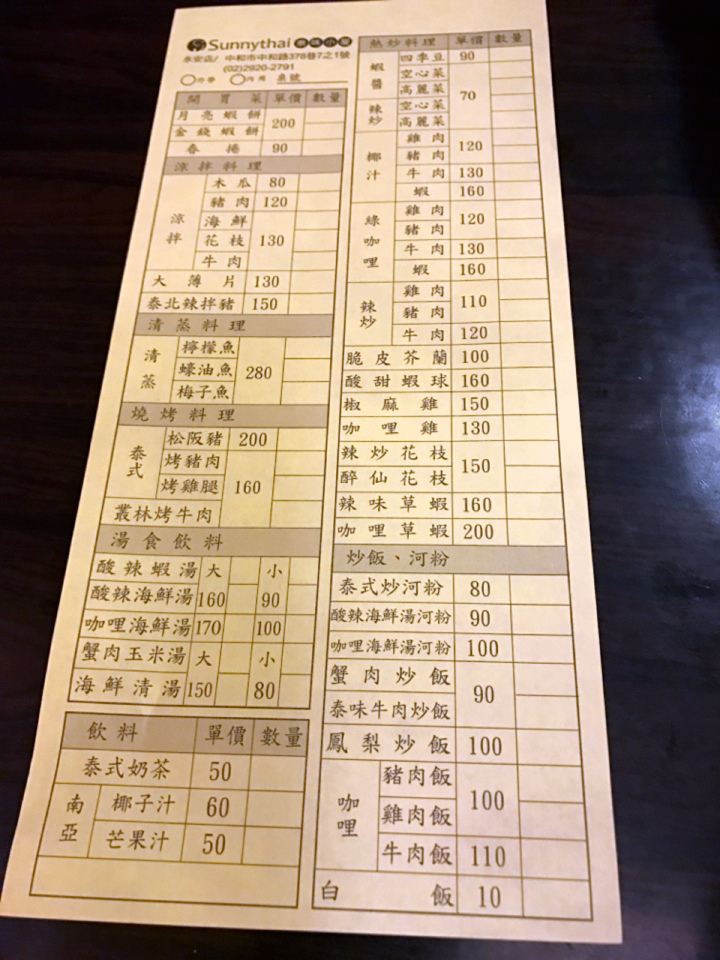 Sunnythai 泰味小屋
永安店/ 中和市中和路378巷7之1號
(02)2920-2791
外帶 內用 桌號
開胃菜 單價 數量
月亮蝦餅 200
金錢蝦餅
春捲 90
涼拌料理
涼拌 木瓜 80
豬肉 120
海鮮
花枝 130
牛肉
大薄片 130
泰北辣拌豬 150
清蒸料理
清蒸 檸檬魚
蠔油魚 280
梅子魚
燒烤料理
泰式 松阪豬 200
烤豬肉
烤雞腿 160
叢林烤牛肉
湯食飲料
酸辣蝦湯 大 小
酸辣海鮮湯 160 90
咖哩海鮮湯 170 100
蟹肉玉米湯 大 小
海鮮清湯 150 80
飲料 單價 數量
泰式奶茶 50
南亞 椰子汁 60
芒果汁 50
熱炒料理 單價 數量
蝦醬 四季豆 90
空心菜
高麗菜 70
辣炒 空心菜
高麗菜
椰汁 雞肉 120
豬肉
牛肉 130
蝦 160
綠咖哩 雞肉 120
豬肉
牛肉 130
蝦 160
辣炒 雞肉 110
豬肉
牛肉 120
脆皮芥蘭 100
酸甜蝦球 160
椒麻雞 150
咖哩雞 130
辣炒花枝 150
醉仙花枝
辣味草蝦 160
咖哩草蝦 200
炒飯、河粉
泰式炒河粉 80
酸辣海鮮湯河粉 90
咖哩海鮮湯河粉 100
蟹肉炒飯 90
泰味牛肉炒飯
鳳梨炒飯 100
咖哩 豬肉飯 100
雞肉飯
牛肉飯 110
白飯 10